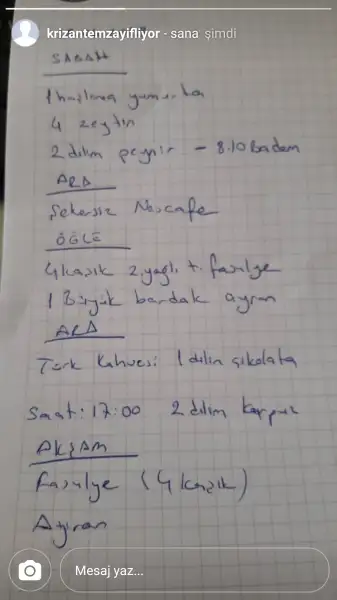 krizantemzayifliyor - sana şimdi
SABAH
1 haşlama yumurta
4 zeytin
2 dilim peynir - 8.10 Badem
ARA
Şekersiz Nescafe
ÖĞLE
4 kaşık z.yağlı t. fasulye
1 Büyük bardak ayran
ARA
Türk Kahvesi 1 dilin çikolata
Saat: 17:00 2 dilim karpuz
AKŞAM
Fasulye (4 kaşık)
Ayran
Mesaj yaz...